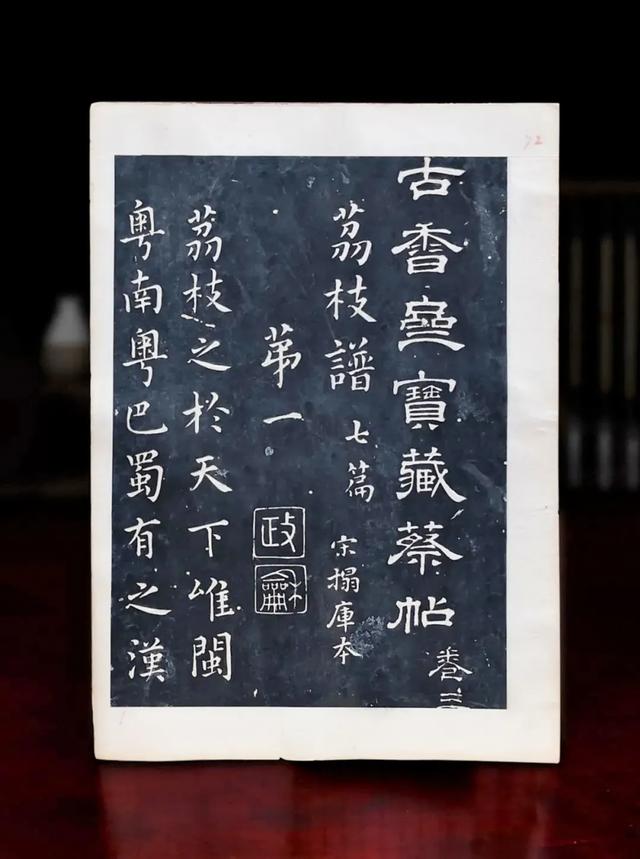 古香齋寶藏蔡帖 卷
荔枝譜 七篇 宋搨庫本
苐一
政
龢
荔枝之扵天下唯閩
粤南粤巴蜀有之漢
72